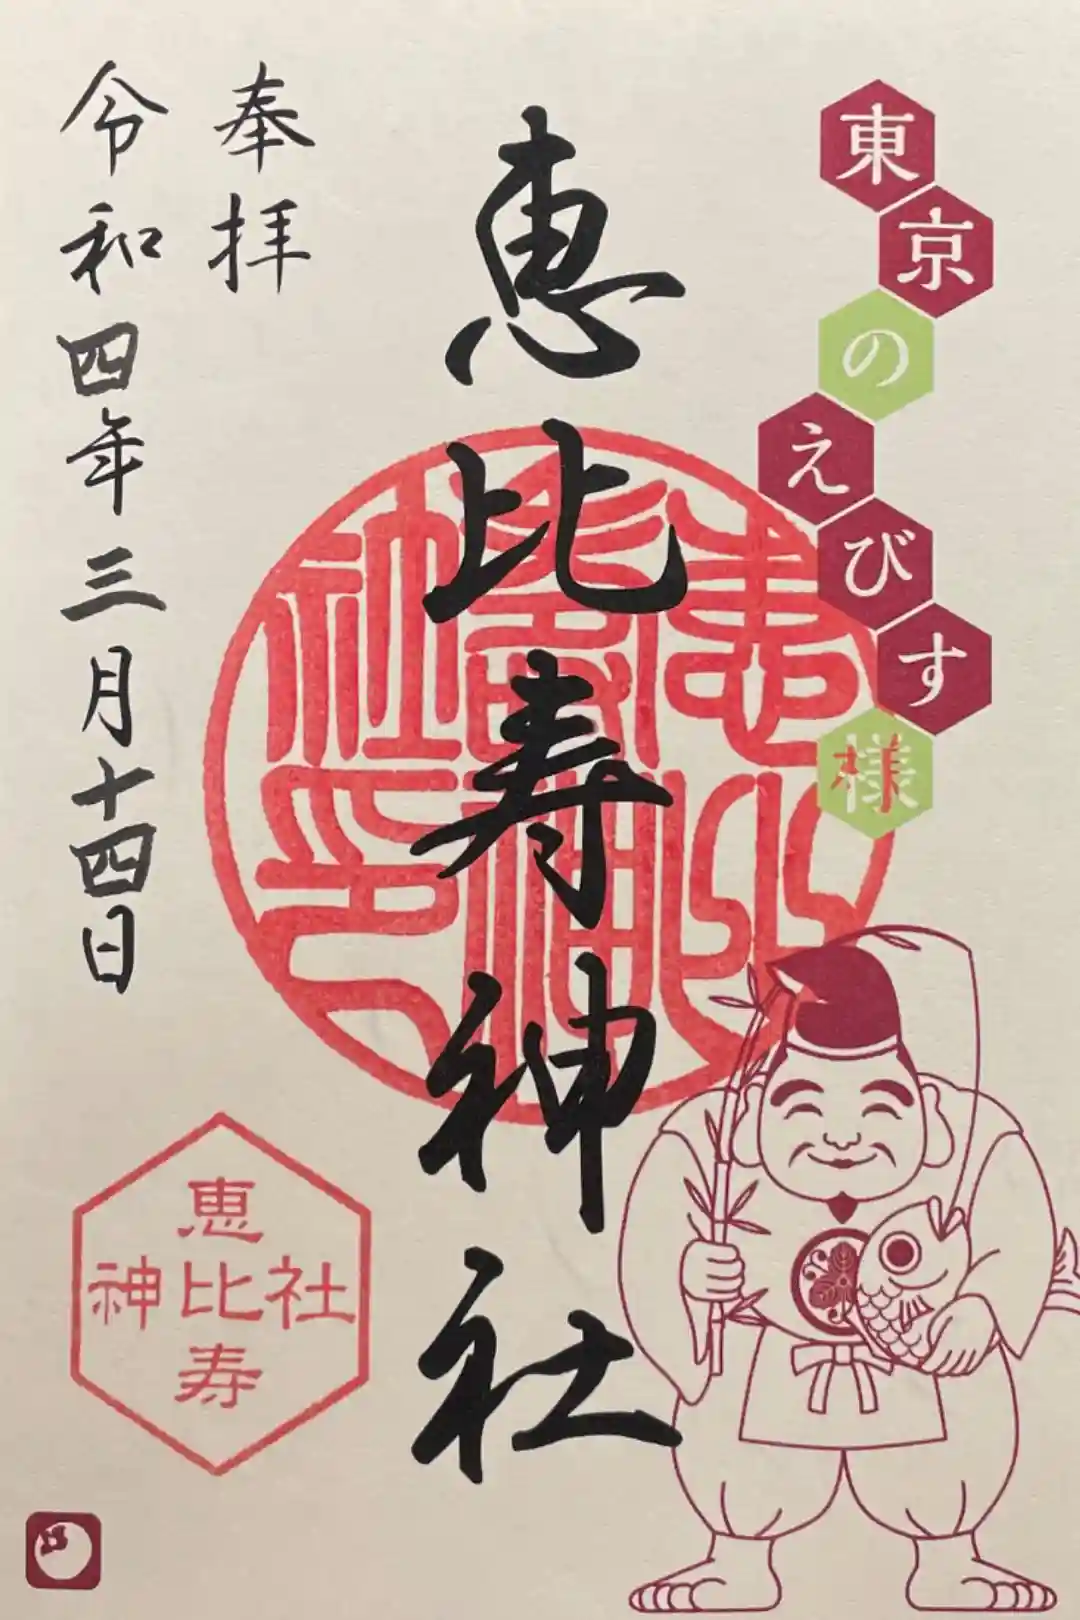 東京のえびす様
恵比寿神社
奉拝
令和四年三月十四日
恵比寿神社印
恵比寿
神社